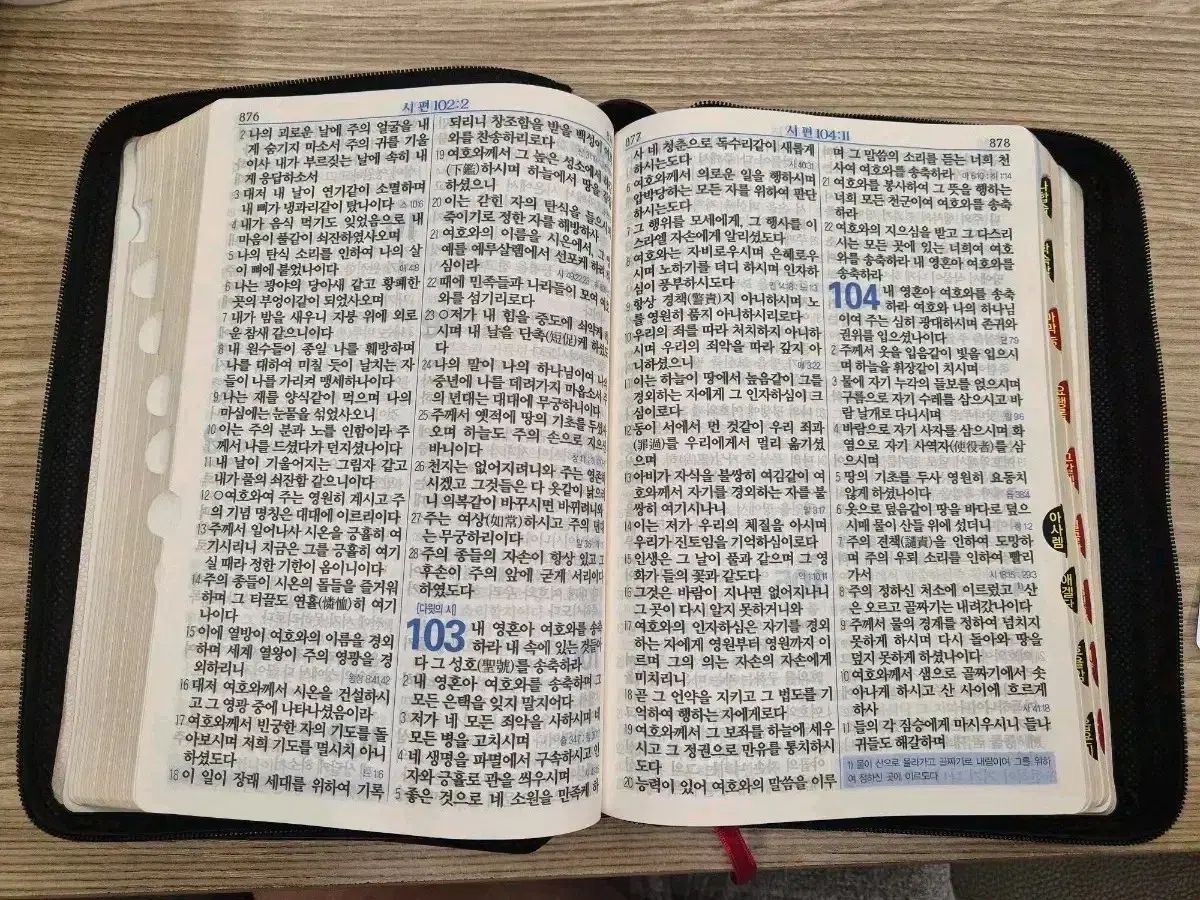 876
시 편 102:2
2 나의 괴로운 날에 주의 얼굴을 내
게 숨기지 마소서 주의 귀를 기울
이사 내가 부르짖는 날에 속히 내
게 응답하소서
3 대저 내 날이 연기같이 소멸하며
내 뼈가 냉과리같이 탔나이다
4 내가 음식 먹기도 잊었음으로 내
마음이 풀같이 쇠잔하였사오며
5 나의 탄식 소리를 인하여 나의 살
이 뼈에 붙었나이다
6 나는 광야의 당아새 같고 황폐한
곳의 부엉이같이 되었사오며
7 내가 밤을 새우니 지붕 위에 외로
운 참새 같으니이다
8 내 원수들이 종일 나를 훼방하며
나를 대하여 미칠 듯이 날치는 자
들이 나를 가리켜 맹세하나이다
9 나는 재를 양식같이 먹으며 나의
마심에는 눈물을 섞었사오니
10 이는 주의 분과 노를 인함이라 주
께서 나를 드셨다가 던지셨나이다
11 내 날이 기울어지는 그림자 같고
내가 풀의 쇠잔함 같으니이다
12 ○여호와여 주는 영원히 계시고 주
의 기념 명칭은 대대에 이르리이다
13 주께서 일어나사 시온을 긍휼히 여
기시리니 지금은 그를 긍휼히 여기
실 때라 정한 기한이 옴이니이다
14 주의 종들이 시온의 돌들을 즐거워
하며 그 티끌도 연휼(憐恤)히 여기
나이다
15 이에 열방이 여호와의 이름을 경외
하며 세계 열왕이 주의 영광을 경
외하리니
16 대저 여호와께서 시온을 건설하시
고 그 영광 중에 나타나셨음이라
17 여호와께서 빈궁한 자의 기도를 돌
아보시며 저희 기도를 멸시치 아니
하셨도다
18 이 일이 장래 세대를 위하여 기록
되리니 창조함을 받을 백성이
와를 찬송하리로다
19 여호와께서 그 높은 성소에서
(下鑑)하시며 하늘에서 땅을
하셨으니
20 이는 갇힌 자의 탄식을 들으시
죽이기로 정한 자를 해방하사
21 여호와의 이름을 시온에서, 그
예를 예루살렘에서 선포케 하려
심이라
22 때에 민족들과 나라들이 모여 여
와를 섬기리로다
23 ○저가 내 힘을 중도에 쇠약케
시며 내 날을 단촉(短促)케 하셨
다
24 나의 말이 나의 하나님이여 나의
중년에 나를 데려가지 마옵소서 주
의 년대는 대대에 무궁하니이다
25 주께서 옛적에 땅의 기초를 두셨
으며 하늘도 주의 손으로 지으신
바니이다
26 천지는 없어지려니와 주는 영존
시겠고 그것들은 다 옷같이 낡으
니 의복같이 바꾸시면 바뀌려니와
27 주는 여상(如常)하시고 주의 년대
는 무궁하리이다
28 주의 종들의 자손이 항상 있고
후손이 주의 앞에 굳게 서리이다
하였도다
[다윗의 시]
103 내 영혼아 여호와를 송축
하라 내 속에 있는 것들아
다 그 성호(聖號)를 송축하라
2 내 영혼아 여호와를 송축하며 그
모든 은택을 잊지 말지어다
3 저가 네 모든 죄악을 사하시며 네
모든 병을 고치시며
4 네 생명을 파멸에서 구속하시고 인
자와 긍휼로 관을 씌우시며
5 좋은 것으로 네 소원을 만족케 하
877
시 편 104:11
878
사 네 청춘으로 독수리같이 새롭게
하시는도다
6 여호와께서 의로운 일을 행하시며
압박당하는 모든 자를 위하여 판단
하시는도다
7 그 행위를 모세에게, 그 행사를 이
스라엘 자손에게 알리셨도다
8 여호와는 자비로우시며 은혜로우
시며 노하기를 더디 하시며 인자하
심이 풍부하시도다
9 항상 경책(警責)지 아니하시며 노
를 영원히 품지 아니하시리로다
10 우리의 죄를 따라 처치하지 아니하
시며 우리의 죄악을 따라 갚지 아니
하셨으니
11 이는 하늘이 땅에서 높음같이 그를
경외하는 자에게 그 인자하심이 크
심이로다
12 동이 서에서 먼 것같이 우리 죄과
(罪過)를 우리에게서 멀리 옮기셨
으며
13 아비가 자식을 불쌍히 여김같이 여
호와께서 자기를 경외하는 자를 불
쌍히 여기시나니
14 이는 저가 우리의 체질을 아시며
우리가 진토임을 기억하심이로다
15 인생은 그 날이 풀과 같으며 그 영
화가 들의 꽃과 같도다
16 그것은 바람이 지나면 없어지나니
그 곳이 다시 알지 못하거니와
17 여호와의 인자하심은 자기를 경외
하는 자에게 영원부터 영원까지 이
르며 그의 의는 자손의 자손에게
미치리니
18 곧 그 언약을 지키고 그 법도를 기
억하여 행하는 자에게로다
19 여호와께서 그 보좌를 하늘에 세우
시고 그 정권으로 만유를 통치하시
도다
20 능력이 있어 여호와의 말씀을 이루
며 그 말씀의 소리를 듣는 너희 천
사여 여호와를 송축하라
21 여호와를 봉사하여 그 뜻을 행하는
너희 모든 천군이여 여호와를 송축
하라
22 여호와의 지으심을 받고 그 다스리
시는 모든 곳에 있는 너희여 여호
와를 송축하라 내 영혼아 여호와를
송축하라
104 내 영혼아 여호와를 송축
하라 여호와 나의 하나님
이여 주는 심히 광대하시며 존귀와
권위를 입으셨나이다
2 주께서 옷을 입음같이 빛을 입으시
며 하늘을 휘장같이 치시며
3 물에 자기 누각의 들보를 얹으시며
구름으로 자기 수레를 삼으시고 바
람 날개로 다니시며
4 바람으로 자기 사자를 삼으시며 화
염으로 자기 사역자(使役者)를 삼
으시며
5 땅의 기초를 두사 영원히 요동치
않게 하셨나이다
6 옷으로 덮음같이 땅을 바다로 덮으
시매 물이 산들 위에 섰더니
7 주의 견책(譴責)을 인하여 도망하
며 주의 우뢰 소리를 인하여 빨리
가서
8 주의 정하신 처소에 이르렀고 산
은 오르고 골짜기는 내려갔나이다
9 주께서 물의 경계를 정하여 넘치지
못하게 하시며 다시 돌아와 땅을
덮지 못하게 하셨나이다
10 여호와께서 샘으로 골짜기에서 솟
아나게 하시고 산 사이에 흐르게
하사
11 들의 각 짐승에게 마시우시니 들나
귀들도 해갈하며
1) 물이 산으로 올라가고 골짜기로 내려갔나이다, 그를 위하
여 정하신 곳에 이르도다
아사렘